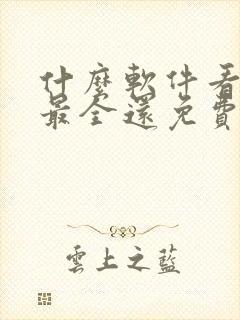 什麼軟件看
最全還免費
雲上之藍